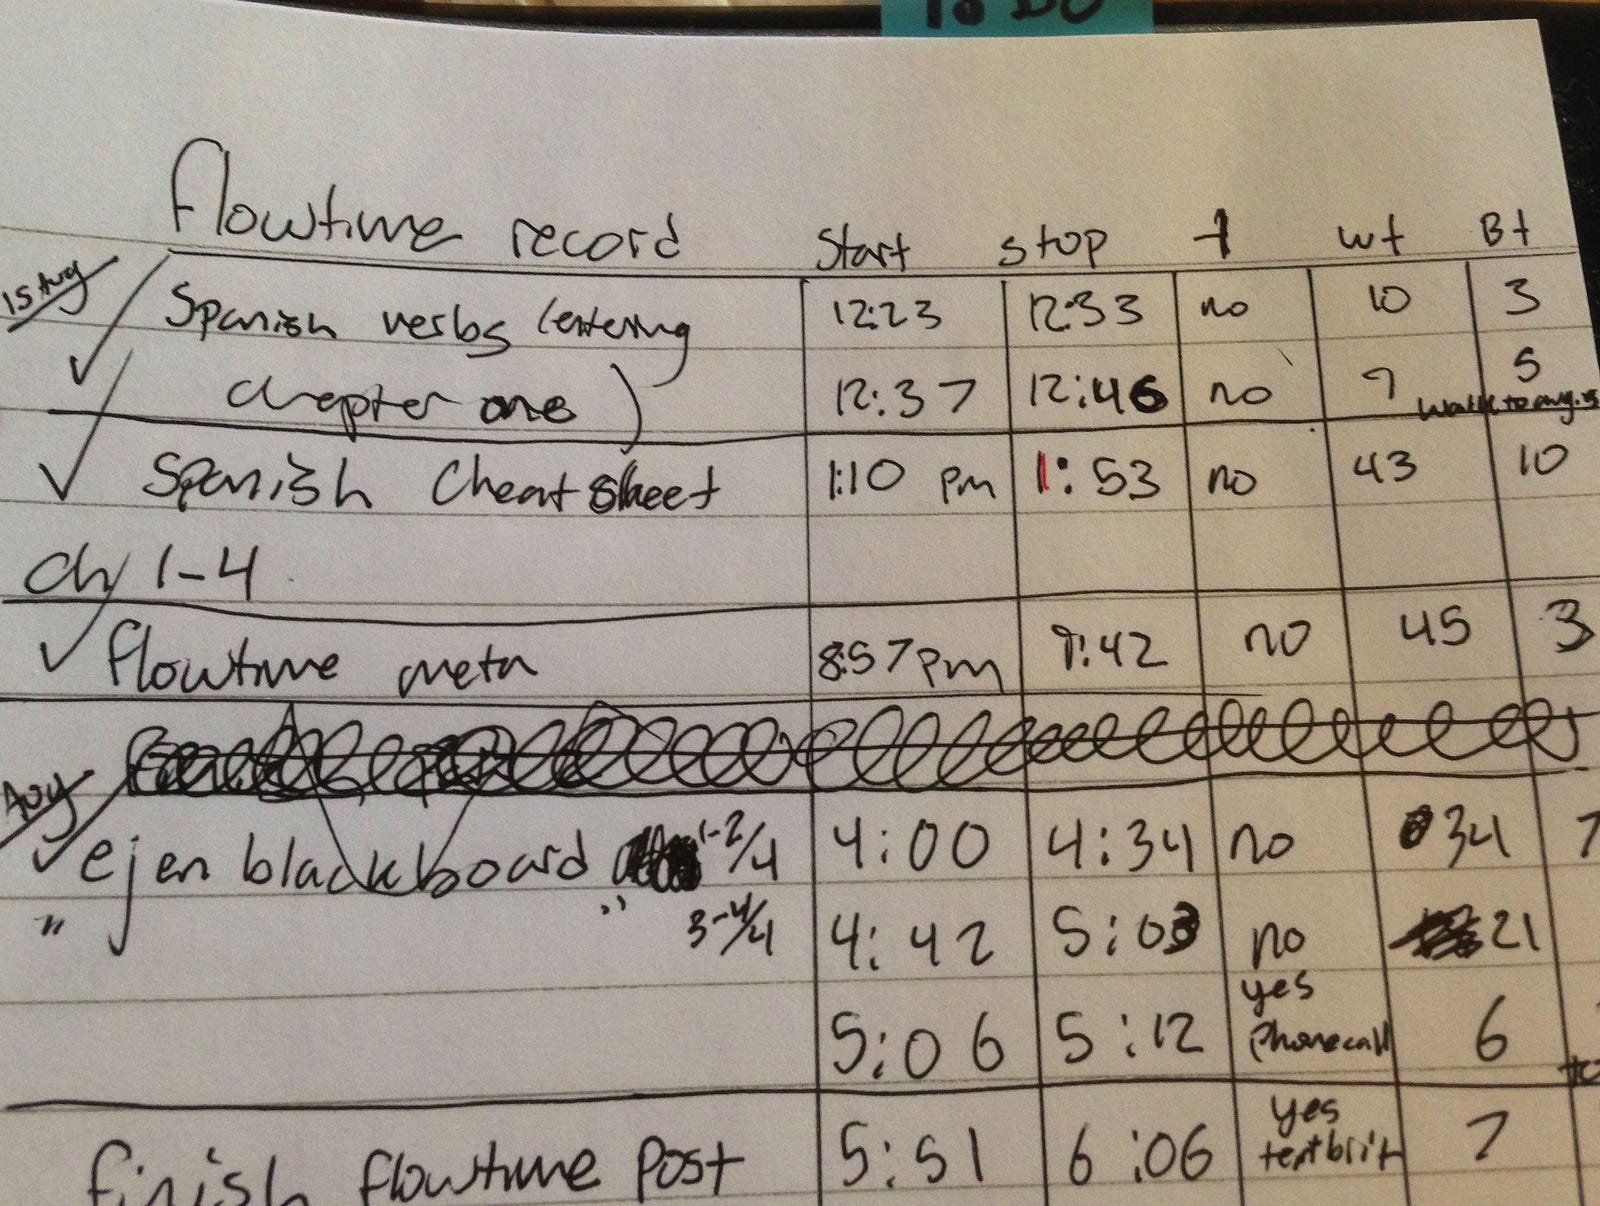 TO DO
flowtime record start stop I wt Bt
15 Aug
Spanish verbs (entering 12:23 12:33 no 10 3
chapter one) 12:37 12:46 no 9 5
walk to
Spanish Cheat sheet 1:10 pm 1:53 no 43 10
ch 1-4
flowtime meta 8:57 pm 9:42 no 45 3
Aug
ej en blackboard 1-2/4 4:00 4:34 no 34 7
" " 3-4/4 4:42 5:03 no 21
5:06 5:12 yes phonecall 6
finish flowtime post 5:51 6:06 yes 7